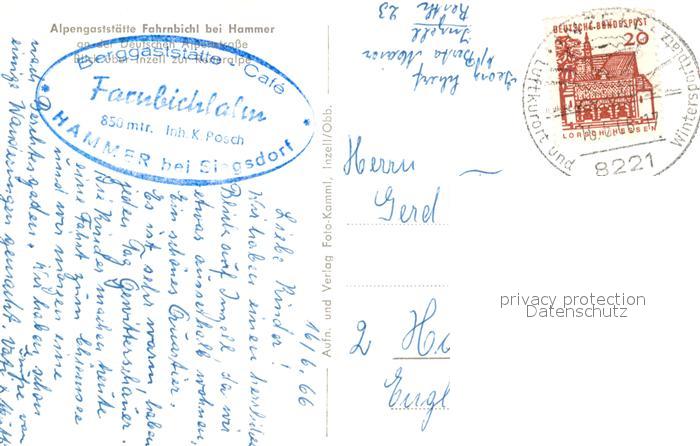 Alpengaststätte Fahrnbichl bei Hammer
an der Deutschen Alpenstraße
Blick über Inzell zur Reiteralpe
Berggaststätte Café
Farnbichlalm
850 mtr. Inh. K. Posch
HAMMER bei Siegsdorf
16/6. 66
Liebe Kinder!
Wir haben einen herrlichen
Blick auf Inzell, da wir
etwas ausserhalb wohnen,
Ein schönes Quartier.
Es ist sehr warm, haben
jeden Tag Gewitterschauer.
Die Kinder machen heute
eine Fahrt zum Chiemsee
und wir waren eine
nach Berchtesgaden. Wir haben schon
einige Wanderungen gemacht.
Aufn. und Verlag Foto-Kamml, Inzell/Obb.
Georg
Inzell
23
Herrn
Gerd
2 H
Engl
DEUTSCHE BUNDESPOST
20
LORSCH/HESSEN
Luftkurort und Wintersportplatz
8221
privacy protection
Datenschutz